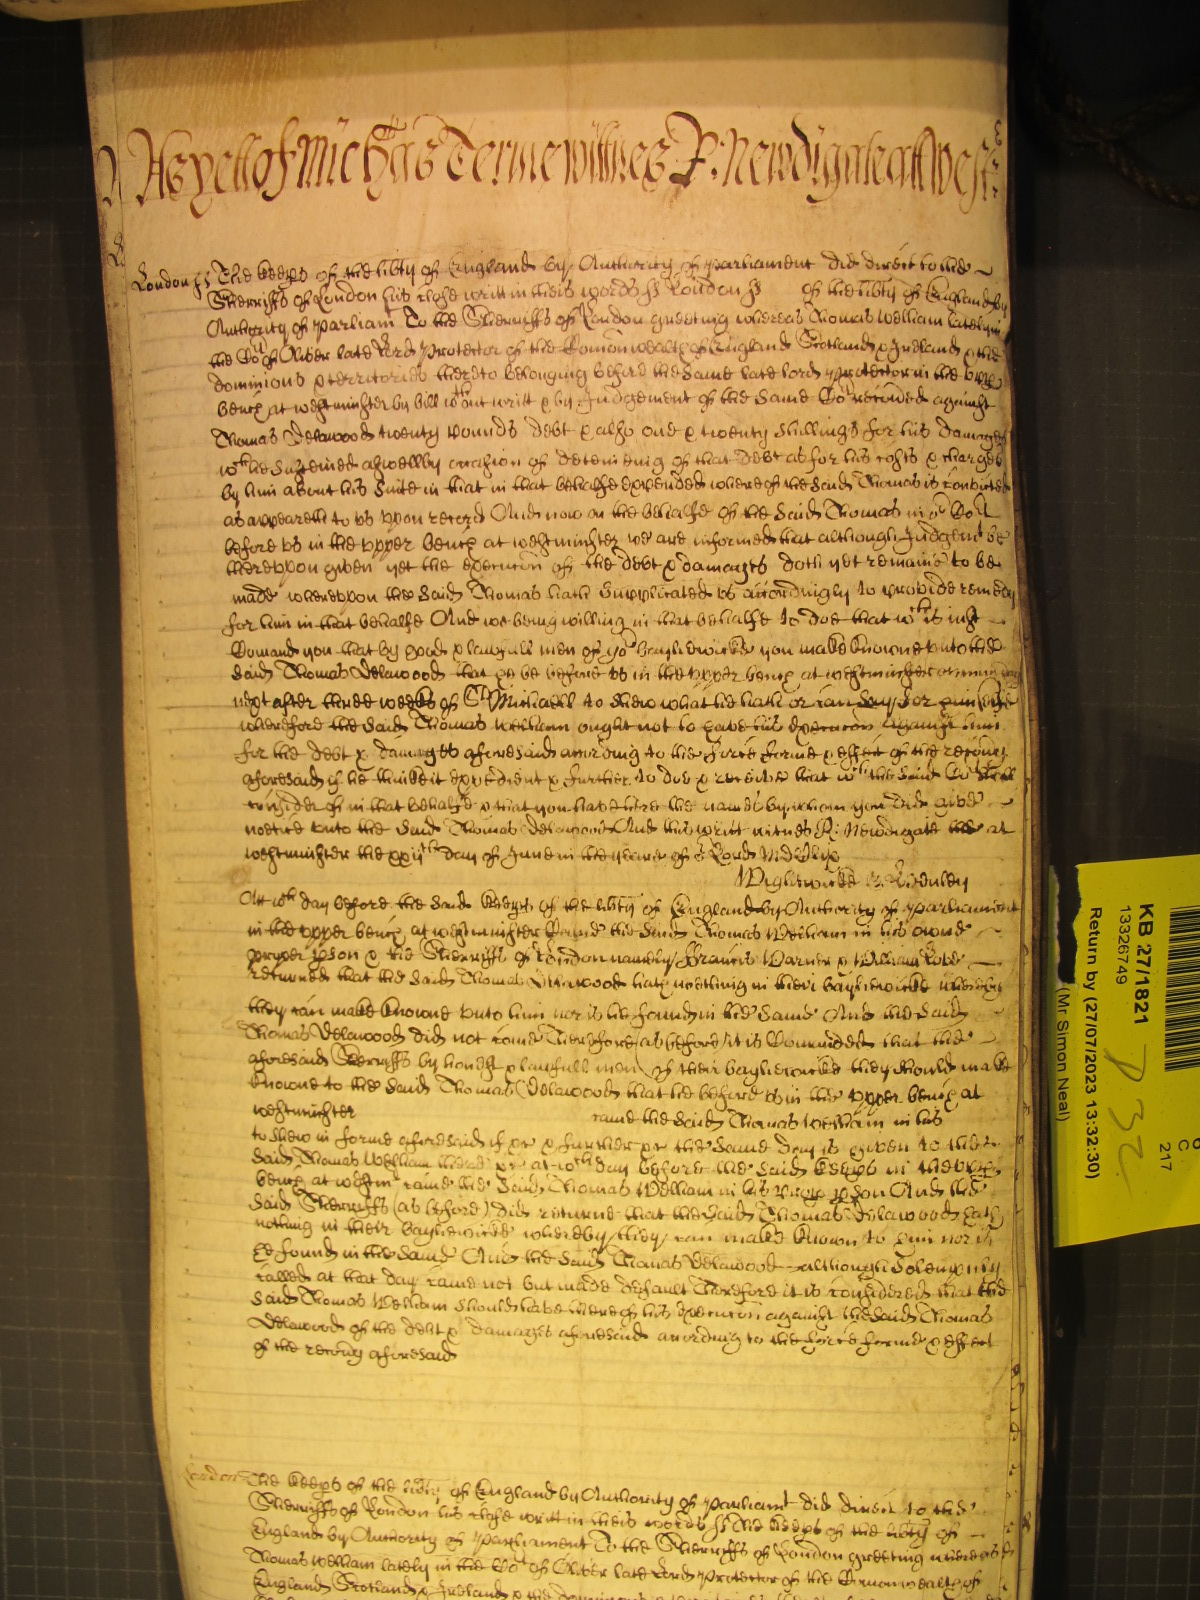 As yett of Mich'as Terme wittnes R: Newdigate att West
London ss The Keeps of the libty of England by Authority of parliament did direct to the
Sherriffs of London his close writt in theis words ss London ss of the libty of England by
Authority of parliamt To the Sherriffs of London greeting whereas Thomas Welliam lately in
the Cot of Oliver late Lord Protector of the Comonwealth of England Scotland & Ireland & the
dominions & territories thereto belonging before the same late lord protector in the upper
bench at westminster by bill wthout writt & by Judgement of the same Cot recovered against
Thomas Delawood twenty pounds debt & also one & twenty shillings for his damages
wch he susteined aswell by occasion of deteineing of that debt as for his costs & charges
by him about his suite in that in that behalfe expended whereof the said Thomas is convicted
as appeareth to vs vpon record And now on the behalfe of the said Thomas in or Cort
before vs in the vpper bench at westminster we are informed that although Judgemt be
therevpon given yet the execucon of the debt & damages doth yet remaine to be
made wherevpon the said Thomas hath supplicated vs accordingly to provide remedy
for him in that behalfe And we being willing in that behalfe to doe that wch is just
Comand you that by good & lawfull men of yor bayliewicke you make knowne vnto the
said Thomas Delawood that he be before vs in the vpper bench at westminster on
next after three weeks of St Michaell to shew what he hath or can say for himselfe
wherefore the said Thomas Welliam ought not to have his execucon against him
for the debt & damages aforesaid according to the force forme & effect of the recovy
aforesaid if he thinke it expedient & further to doe & receive that wch the said Cot shall
consider of in that behalfe & that you have there the names by whom you did give
notice vnto the said Thomas Delawood And this writt witnes R: Newdigate at
westminster the xxijth day of June in the yeare of or Lord MDClix
Wightwicke &
Att wch day before the said Keeps of the libty of England by Authority of parliament
in the vpper bench at westminster Came the said Thomas Welliam in his owne
proper pson & the Sherriffs of London namely Francis Warner & William Love
returned that the said Thomas Delawood hath nothing in their bayliewicke whereby
they can make knowne vnto him nor is he found in the same And the said
Thomas Delawood did not come Therefore (as before) it is Comanded that the
aforesaid Sherriffs by honest & lawfull men of their bayliewicke they should make
knowne to the said Thomas Delawood that he before vs in the vpper bench at
westminster came the said Thomas Welliam in his
to shew in forme aforesaid if &c & further &c the same day is given to the
said Thomas Welliam there &c at wch day before the said Keeps in the vpper
bench at westmr came the said Thomas Welliam in his propr pson And the
said Sherriffs (as before) did returne that the said Thomas Delawood hath
nothing in their bayliewicke whereby they can make known to him nor is
he found in the same And the said Thomas Delawood although solempnly
called at that day came not but made default Therefore it is considered that the
said Thomas Welliam should have thereof his execucon against the said Thomas
Delawood of the debt & damages aforesaid according to the force forme & effect
of the recovy aforesaid
London The Keeps of the libty of England by Authority of parliamt did direct to the
Sherriffs of London his close writt in theis words ss The Keeps of the libty of
England by Authority of parliament To the Sherriffs of London greeting whereas
Thomas Welliam lately in the Cot of Oliver late Lord Protector of the Comonwealth of
England Scotland & Ireland & the
KB 27/1821
13326749
Return by (27/07/2023 13:32:30)
(Mr Simon Neal)
217